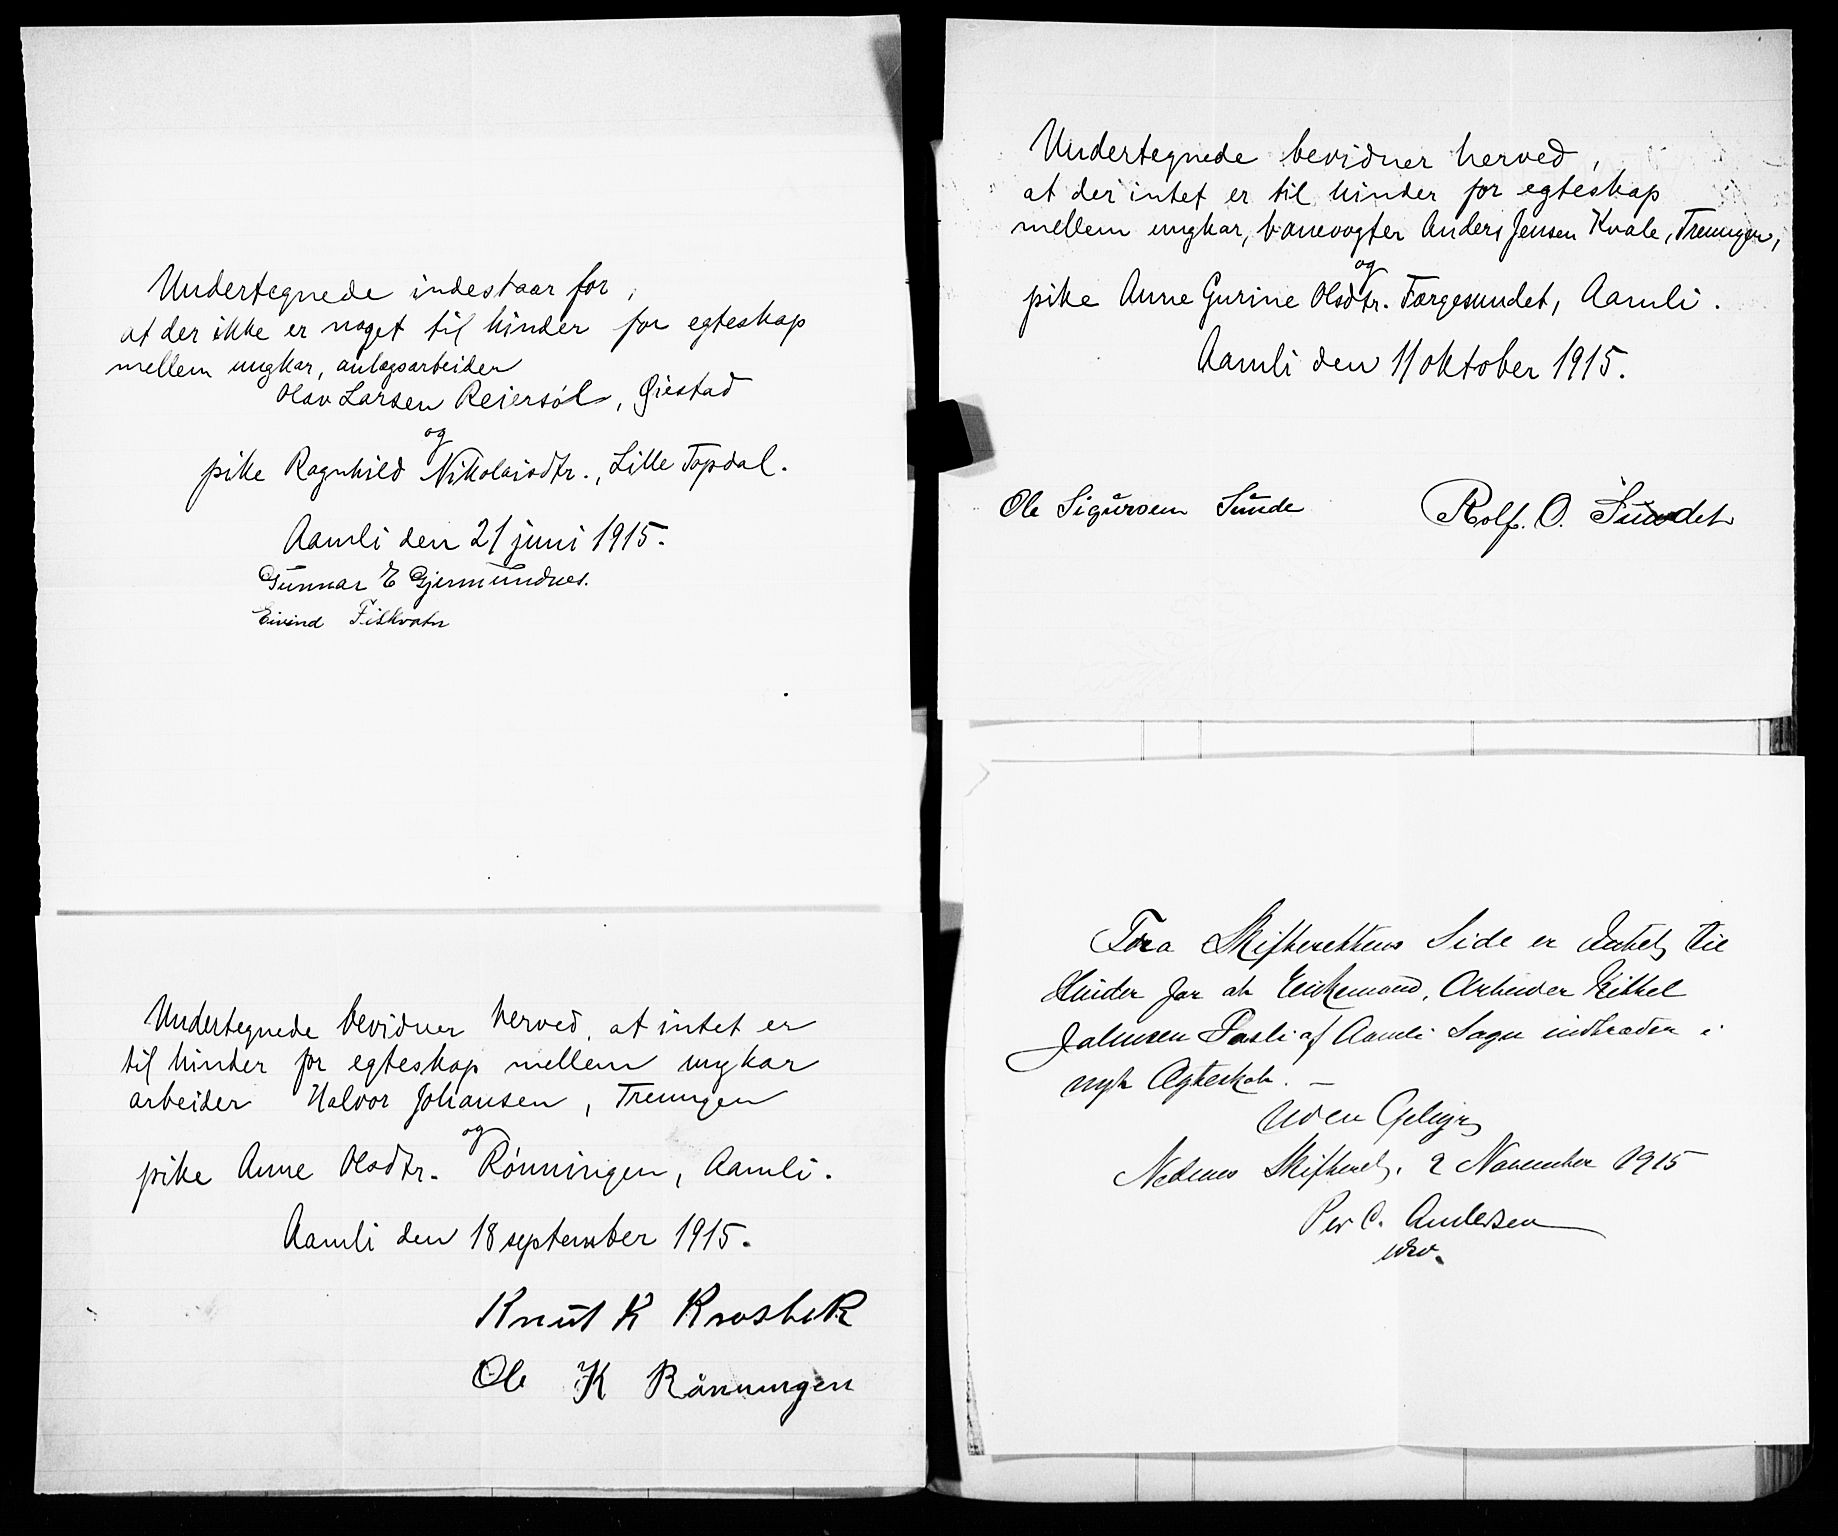 Undertegnede indestaar for,
at der ikke er noget til hinder for egteskap
mellem ungkar, anlægsarbeider
Olav Larsen Reiersøl, Øiestad
og
pike Ragnhild Nikolaisdtr., Lille Topdal.
Aamli den 21 juni 1915.
Gunnar E Gjermundnes.
Eivind Fiskvatn
Undertegnede bevidner herved, at intet er
til hinder for egteskap mellem ungkar
arbeider Halvor Johansen, Treungen
og
pike Anne Olsdtr. Rønningen, Aamli.
Aamli den 18 september 1915.
Knut K Krosbek
Ole K Rønningen
Undertegnede bevidner herved,
at der intet er til hinder for egteskap
mellem ungkar, banevogter Anders Jensen Kvale, Treungen,
og
pike Anne Gurine Olsdtr. Færgesundet, Aamli.
Aamli den 11 oktober 1915.
Ole Sigursen Sunde
Rolf. O. Sundet
Fra Skifterettens Side er Intet til
Hinder for at Enkemand, Arbeider Kittel
Johnsen Fosli af Aamli Sogn indtræder i
nyt Ægteskab. —
Uden Gebyr
Nedenes Skifteret, 2 November 1915
Per C. Andersen